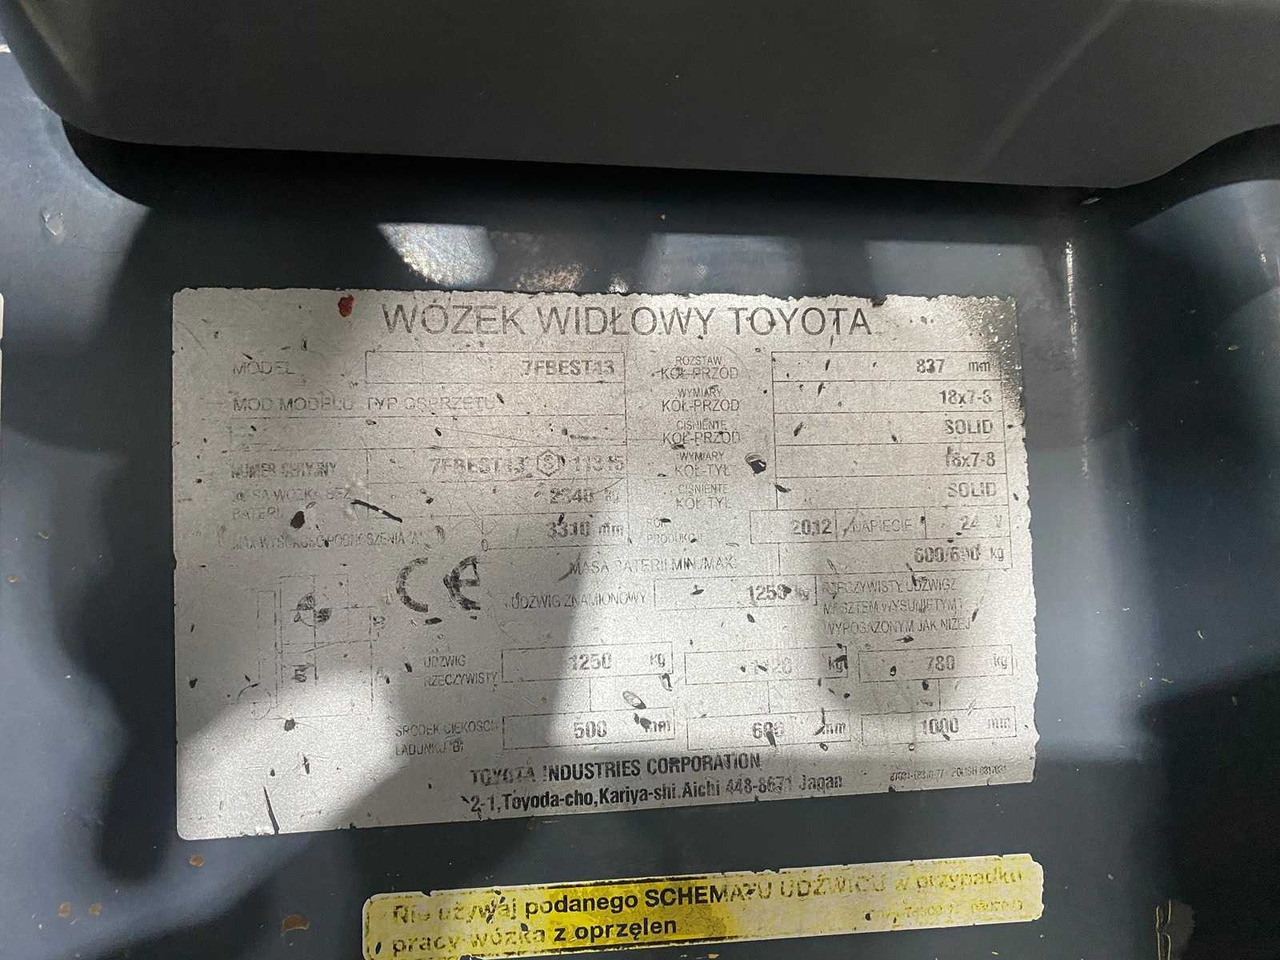 WÓZEK WIDŁOWY TOYOTA
MODEL 7FBEST13 ROZSTAW KÓŁ-PRZÓD 837 mm
MOD MODELU TYP OSPRZĘTU WYMIARY KÓŁ-PRZÓD 18x7-8
CIŚNIENIE KÓŁ-PRZÓD SOLID
NUMER SERYJNY 7FBEST13 S 11315 WYMIARY KÓŁ-TYŁ 18x7-8
MASA WÓZKA BEZ BATERII kg CIŚNIENIE KÓŁ-TYŁ SOLID
MAX WYSOKOŚĆ PODNOSZENIA "A" 3310 mm ROK PRODUKCJI 2012 NAPIĘCIE 24 V
CE MASA BATERII MIN./MAX. kg
UDŹWIG ZNAMIONOWY 1250 kg RZECZYWISTY UDŹWIG Z
MASZTEM WYSUNIĘTYM I
WYPOSAŻONYM JAK NIŻEJ
UDŹWIG RZECZYWISTY 1250 kg kg 780 kg
ŚRODEK CIĘŻKOŚCI ŁADUNKU "B" 500 mm 600 mm 1000 mm
TOYOTA INDUSTRIES CORPORATION
2-1,Toyoda-cho,Kariya-shi.Aichi 448-8671 Japan
Nie używaj podanego SCHEMATU UDŹWIGU w przypadku
pracy wózka z oprzęlen